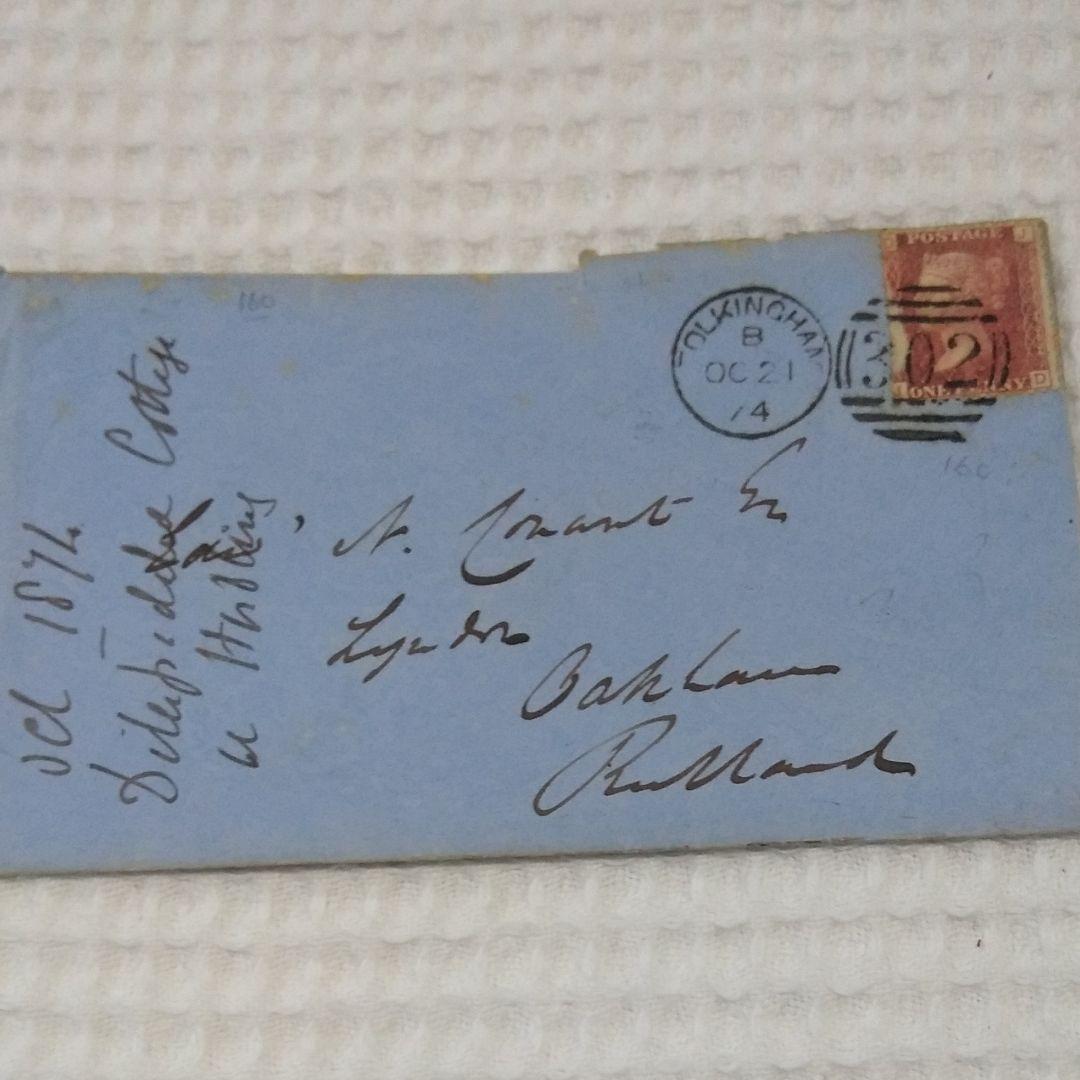 Oct 1874
Dilapidated Cottage
at
160
FOLKINGHAM
B
OC 21
74
302
POSTAGE
ONE PENNY
D
160
N. Conant Esq
Lyndon
Oakham
Rutland